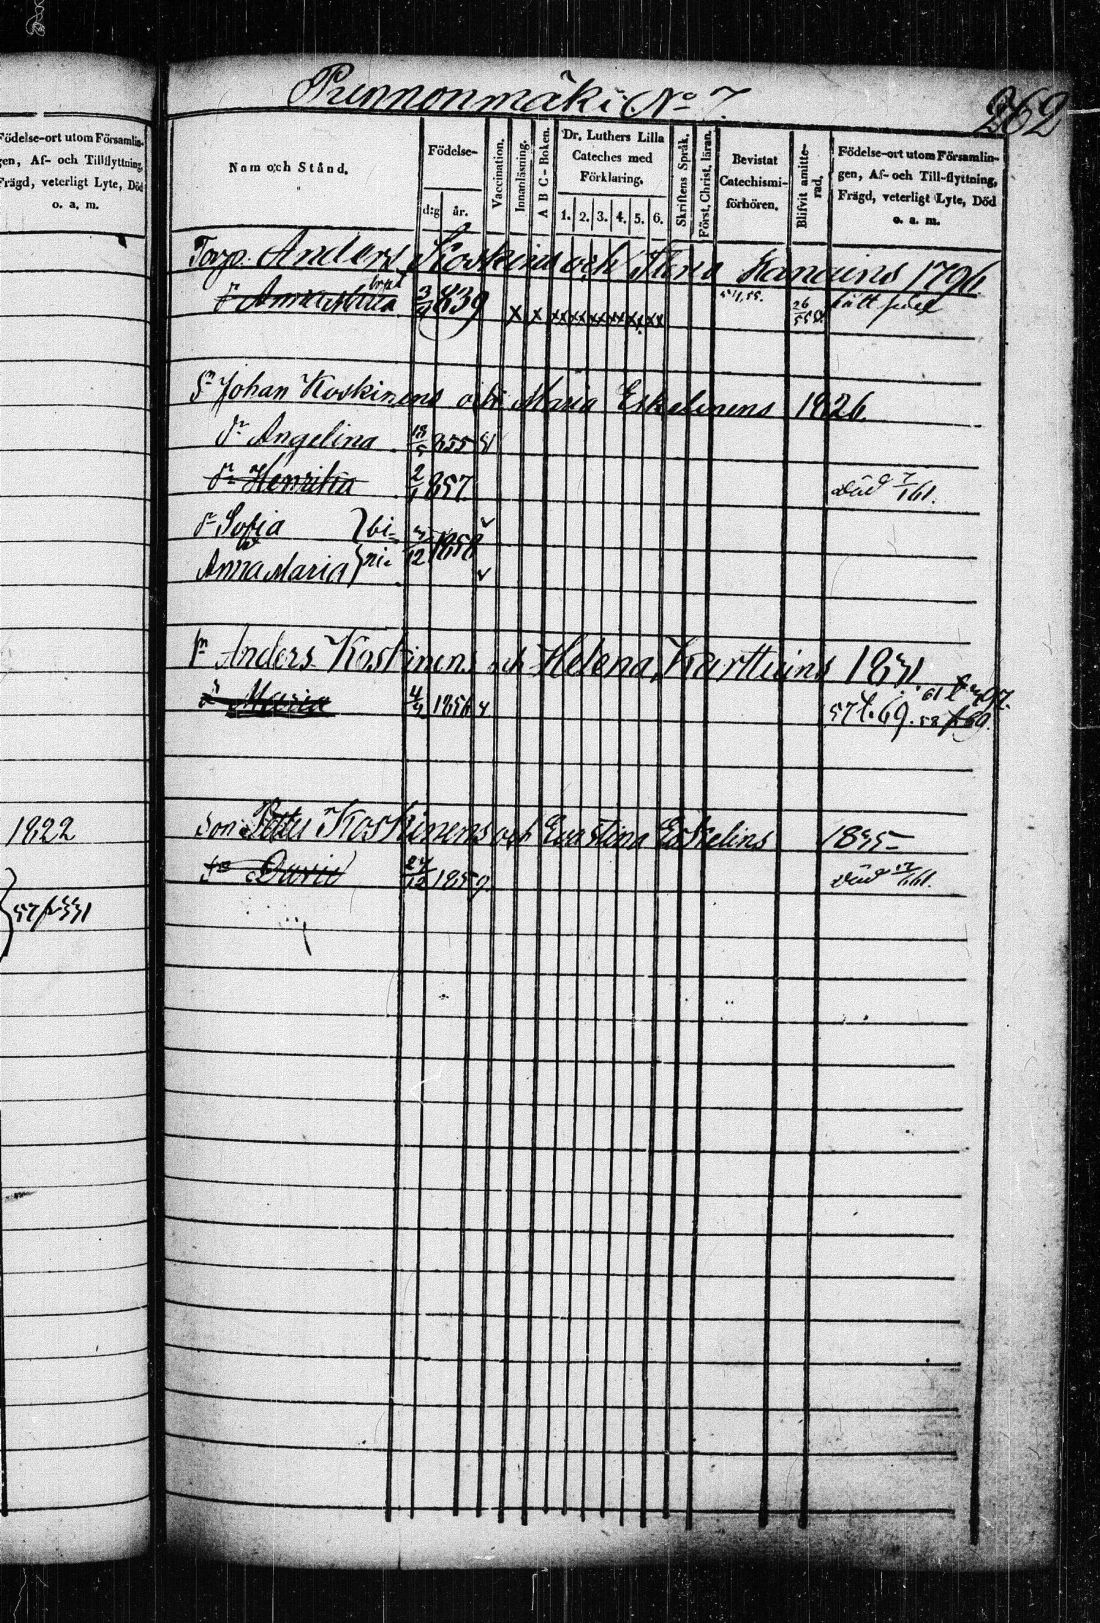 Punnonmäki No 7.
262
Födelse-ort utom Församlin-
gen, Af- och Tillflyttning,
Frägd, veterligt Lyte, Död
o. a. m.
Namn och Stånd.
Födelse-
d:g år.
Vaccination.
Innanläsning.
A B C-Boken.
Dr. Luthers Lilla
Cateches med
Förklaring.
1. 2. 3. 4. 5. 6.
Skriftens Språk.
Först. Christ. läran.
Bevistat
Catechismi-
förhören.
Blifvit amitte-
rad.
Födelse-ort utom Församlin-
gen, Af- och Till-flyttning,
Frägd, veterligt Lyte, Död
o. a. m.
Torp. Anders Koskinens och 1796
839 x x xx xx xx xx xx xx
Sn Johan Koskinens och Maria Eskelinens 1826
dr Angelina 18/5 855
dr Henrika 2/1 857. död 7/1 61.
dr Sofia } bi- 1858
Anna Maria } ni-
Sn Anders Koskinens och Helena Karttuins 1831
dr Maria 4/9 1856
57 f. 69. 58 f. 69.
Son Petter Koskinens och Evastina Eskelins 1835
Sn David 24/12 1859. död
1822
57